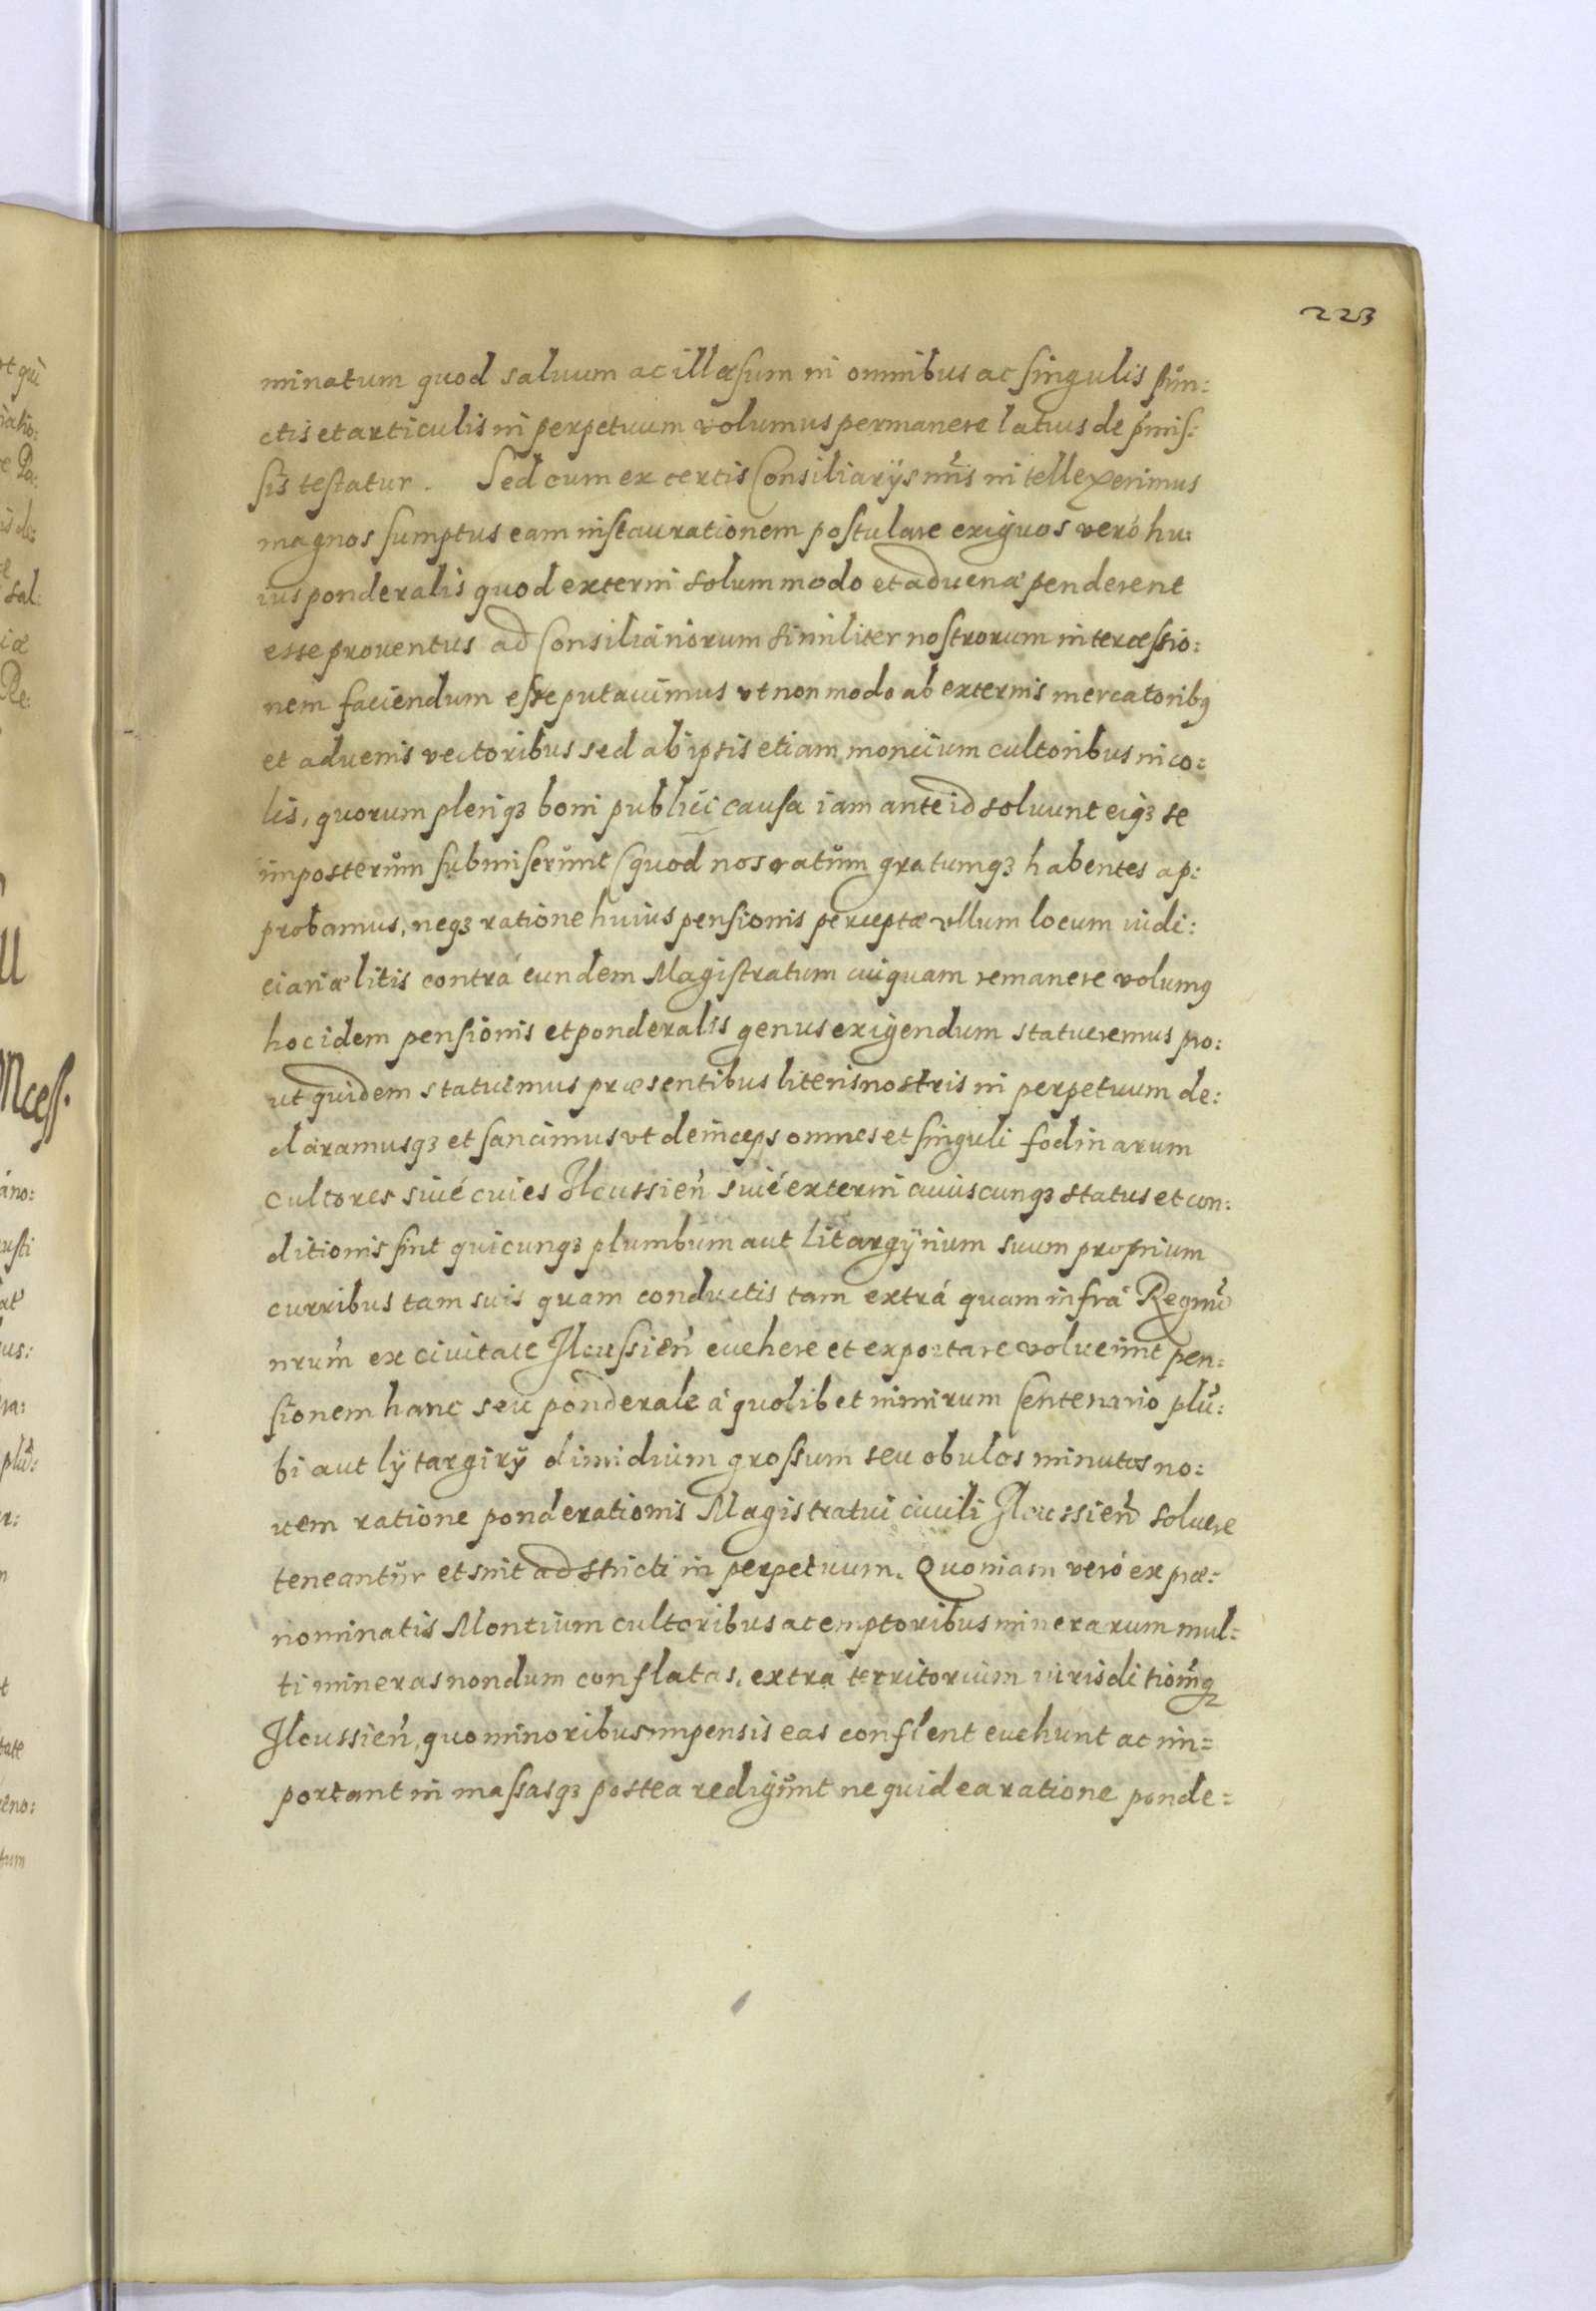 223
minatum quod saluum ac illæsum in omnibus ac singulis pun:
ctis et articulis in perpetuum volumus permanere latius de p̃mis:
sis testatur. Sed cum ex certis Consiliarijs nr̃is intellexerimus
magnos sumptus eam instaurationem postulare exiguos veró hu:
ius ponderalis quod externi solummodo et aduenæ penderent
esse prouentus ad Consiliariorum similiter nostrorum intercessio:
nem faciendum esse putauimus vt non modo ab externis mercatoribꝯ
et aduenis vectoribus sed ab ipsis etiam montium cultoribus inco:
lis, quorum pleriqꝫ boni publici causa iam ante id soluunt eiqꝫ se
imposterum submiserunt (quod nos ratum gratumqꝫ habentes ap:
probamus, neqꝫ ratione huius pensionis perceptæ vllum locum iudi:
ciariæ litis contrá eundem Magistratum cuiquam remanere volumꝯ
hoc idem pensionis et ponderalis genus exigendum statueremus pro:
ut quidem statuimus præsentibus literis nostris in perpetuum de:
claramusqꝫ et sancimus vt deinceps omnes et singuli fodinarum
cultores siué ciues Ilcussieñ siué externi cuiuscunqꝫ status et con:
ditionis sint quicunqꝫ plumbum aut Litargÿrium suum proprium
curribus tam suis quam conductis tam extrá quam infrá Regnũ
nrũm ex ciuitate Ilcussieñ euehere et exportare voluerint pen:
sionem hanc seu ponderale á quolibet nimirum Centenario plũ:
bi aut lÿtargirÿ dimidium grossum seu obulos minutos no:
uem ratione ponderationis Magistratui ciuili Ilcussieñ soluere
teneantur et sint adstricti in perpetuum. Quoniam veró ex præ:
nominatis Montium cultoribus ac emptoribus minerarum mul:
ti mineras nondum conflatas, extra territorium iurisditiom̃qꝫ
Ilcussieñ, quo minoribus impensis eas conflent euehunt ac im:
portant in massasqꝫ postea redigunt ne quid ea ratione ponde: